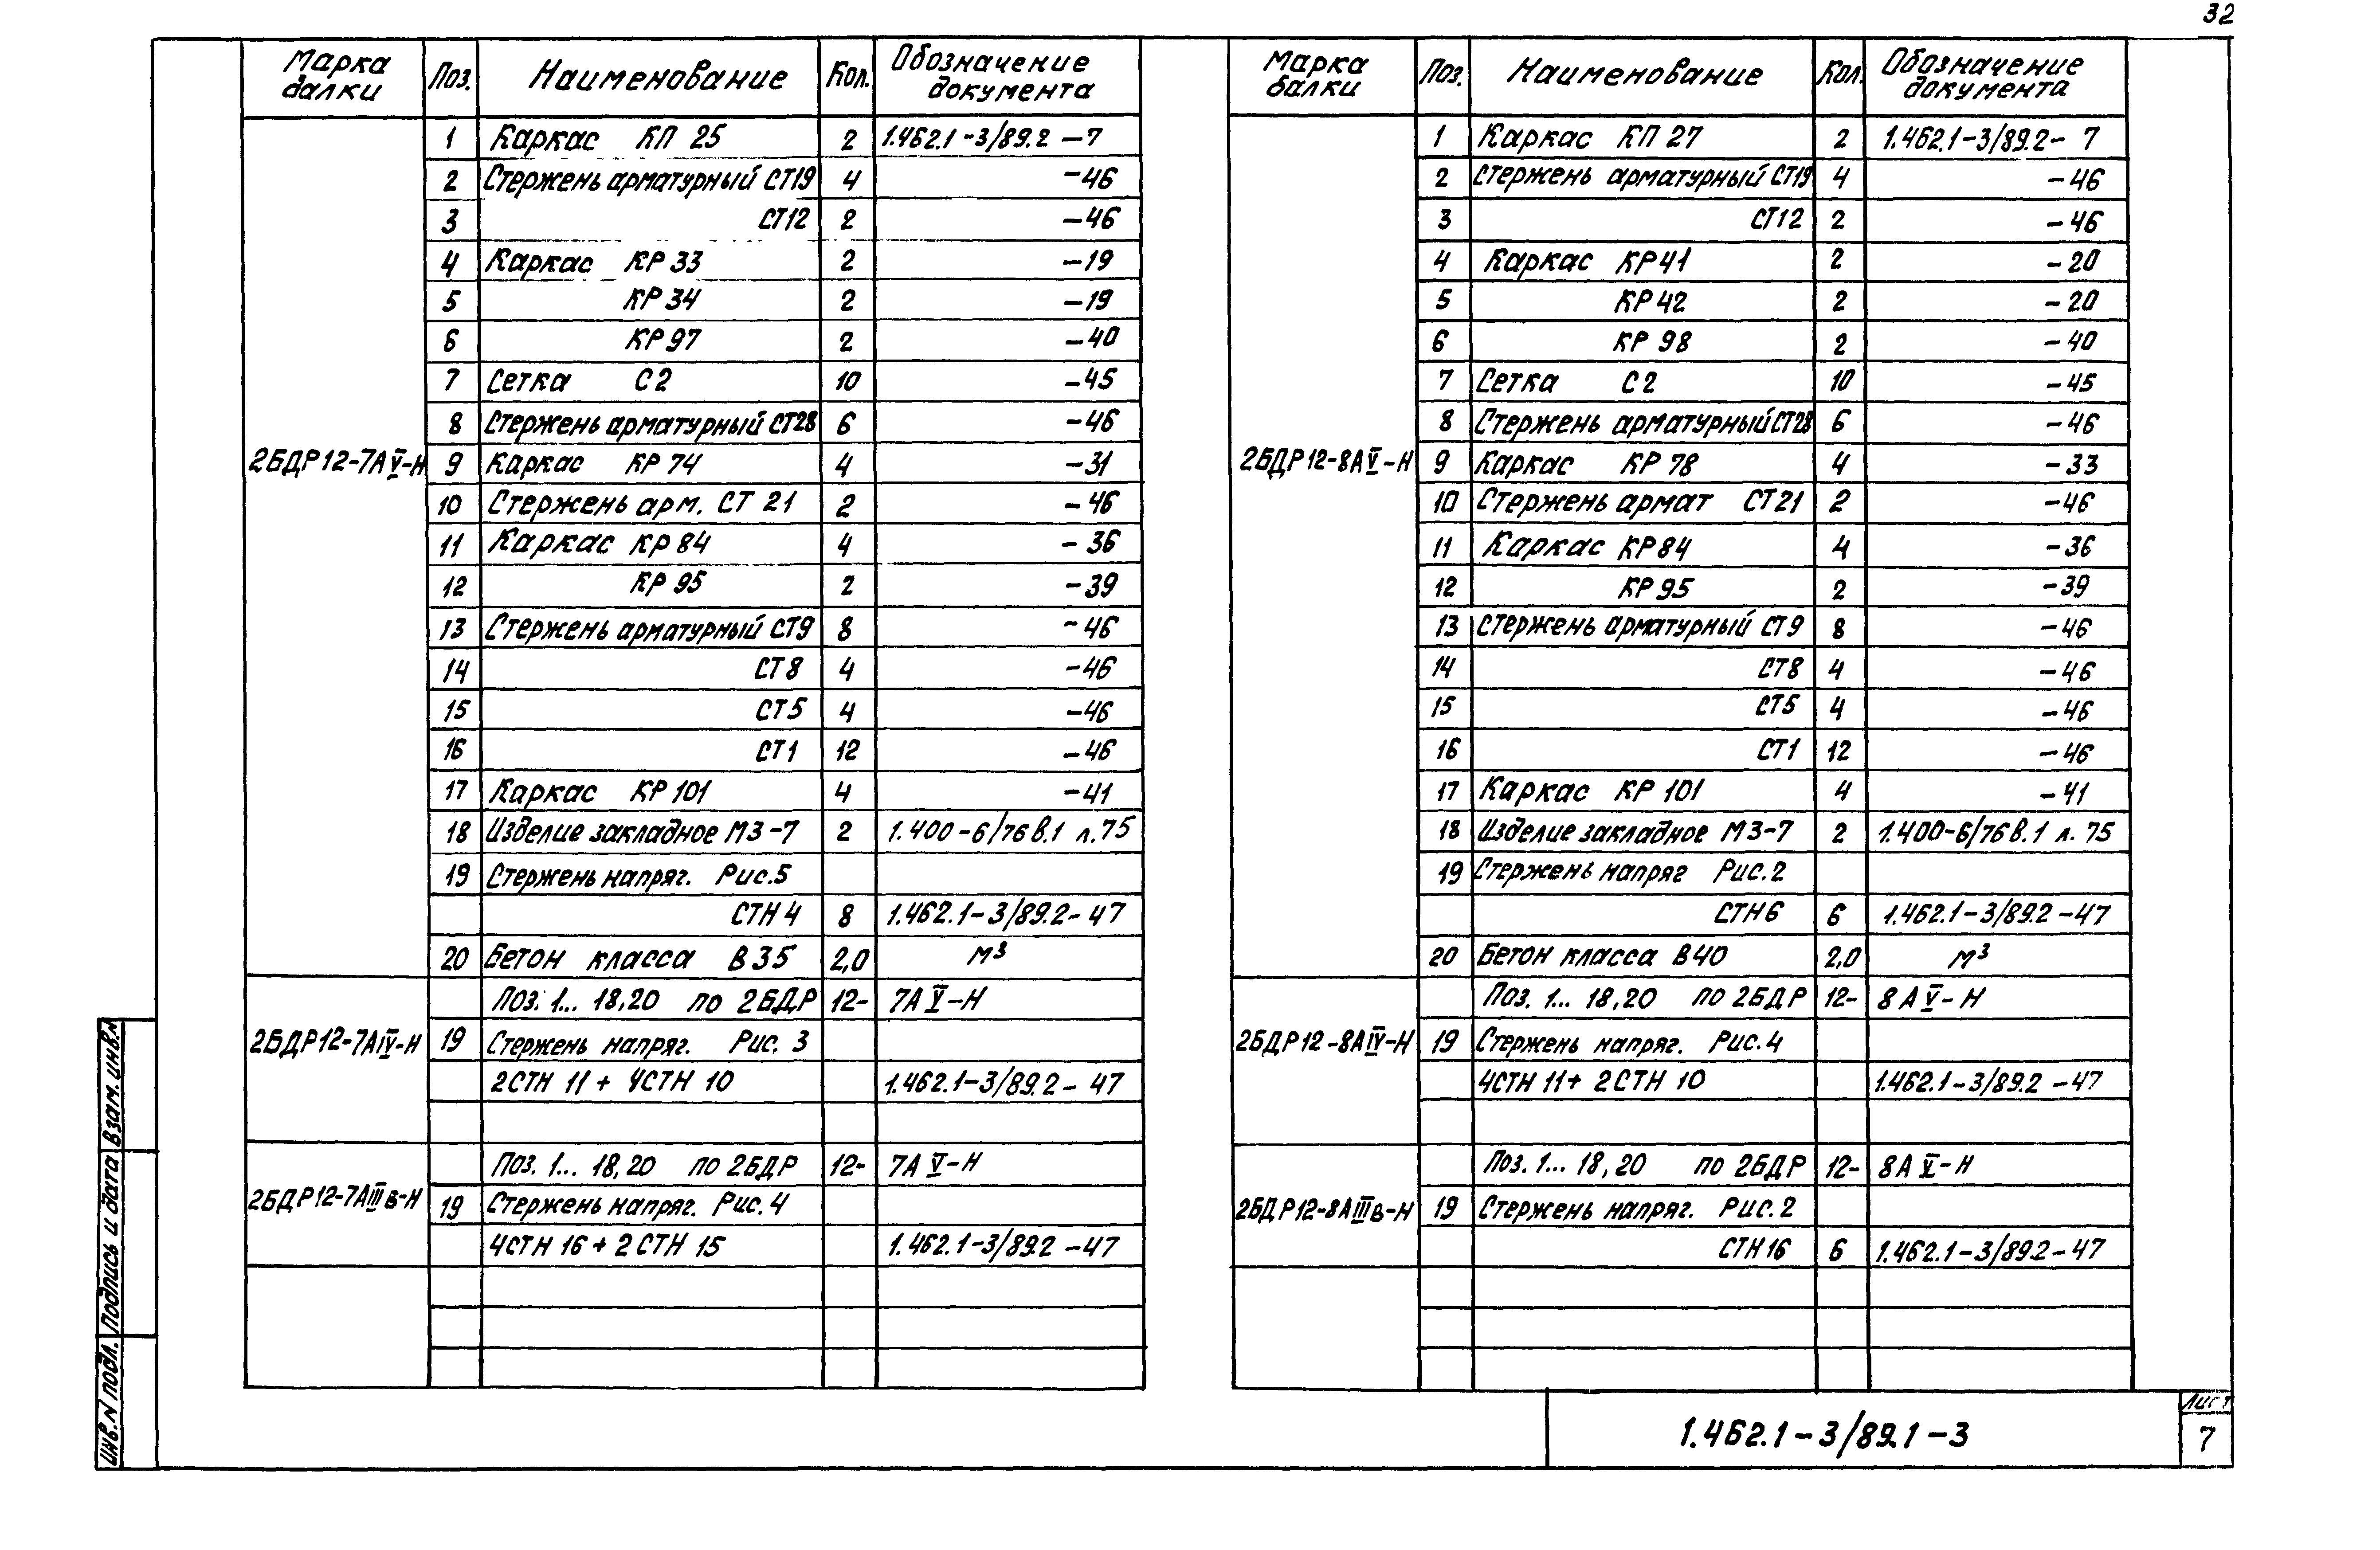 32
Марка балки Поз. Наименование Кол. Обозначение документа
2БДР12-7АV-Н
1 Каркас КП 25 2 1.462.1-3/89.2-7
2 Стержень арматурный СТ19 4 -46
3 СТ12 2 -46
4 Каркас КР33 2 -19
5 КР34 2 -19
6 КР97 2 -40
7 Сетка С2 10 -45
8 Стержень арматурный СТ28 6 -46
9 Каркас КР74 4 -31
10 Стержень арм. СТ 21 2 -46
11 Каркас КР84 4 -36
12 КР95 2 -39
13 Стержень арматурный СТ9 8 -46
14 СТ8 4 -46
15 СТ5 4 -46
16 СТ1 12 -46
17 Каркас КР101 4 -41
18 Изделие закладное М3-7 2 1.400-6/76 в.1 л.75
19 Стержень напряг. Рис.5
СТН4 8 1.462.1-3/89.2-47
20 Бетон класса В35 2,0 м³
2БДР12-7АIV-Н
Поз. 1... 18,20 по 2БДР 12- 7АV-Н
19 Стержень напряг. Рис. 3
2СТН 11 + 4СТН 10 1.462.1-3/89.2-47
2БДР12-7АIIIв-Н
Поз. 1... 18,20 по 2БДР 12- 7АV-Н
19 Стержень напряг. Рис.4
4СТН 16 + 2СТН 15 1.462.1-3/89.2-47
Марка балки Поз. Наименование Кол. Обозначение документа
2БДР12-8АV-Н
1 Каркас КП 27 2 1.462.1-3/89.2-7
2 Стержень арматурный СТ19 4 -46
3 СТ12 2 -46
4 Каркас КР41 2 -20
5 КР42 2 -20
6 КР 98 2 -40
7 Сетка С2 10 -45
8 Стержень арматурный СТ28 6 -46
9 Каркас КР 78 4 -33
10 Стержень армат СТ21 2 -46
11 Каркас КР84 4 -36
12 КР95 2 -39
13 Стержень арматурный СТ9 8 -46
14 СТ8 4 -46
15 СТ5 4 -46
16 СТ1 12 -46
17 Каркас КР 101 4 -41
18 Изделие закладное М3-7 2 1.400-6/76 в.1 л. 75
19 Стержень напряг Рис.2
СТН6 6 1.462.1-3/89.2-47
20 Бетон класса В40 2,0 м³
2БДР12-8АIV-Н
Поз. 1... 18,20 по 2БДР 12- 8АV-Н
19 Стержень напряг. Рис.4
4СТН 11 + 2СТН 10 1.462.1-3/89.2-47
2БДР12-8АIIIв-Н
Поз. 1... 18,20 по 2БДР 12- 8АV-Н
19 Стержень напряг. Рис.2
СТН16 6 1.462.1-3/89.2-47
Взам. инв.№
Подпись и дата
Инв.№ подл.
1.462.1-3/89.1-3
Лист
7